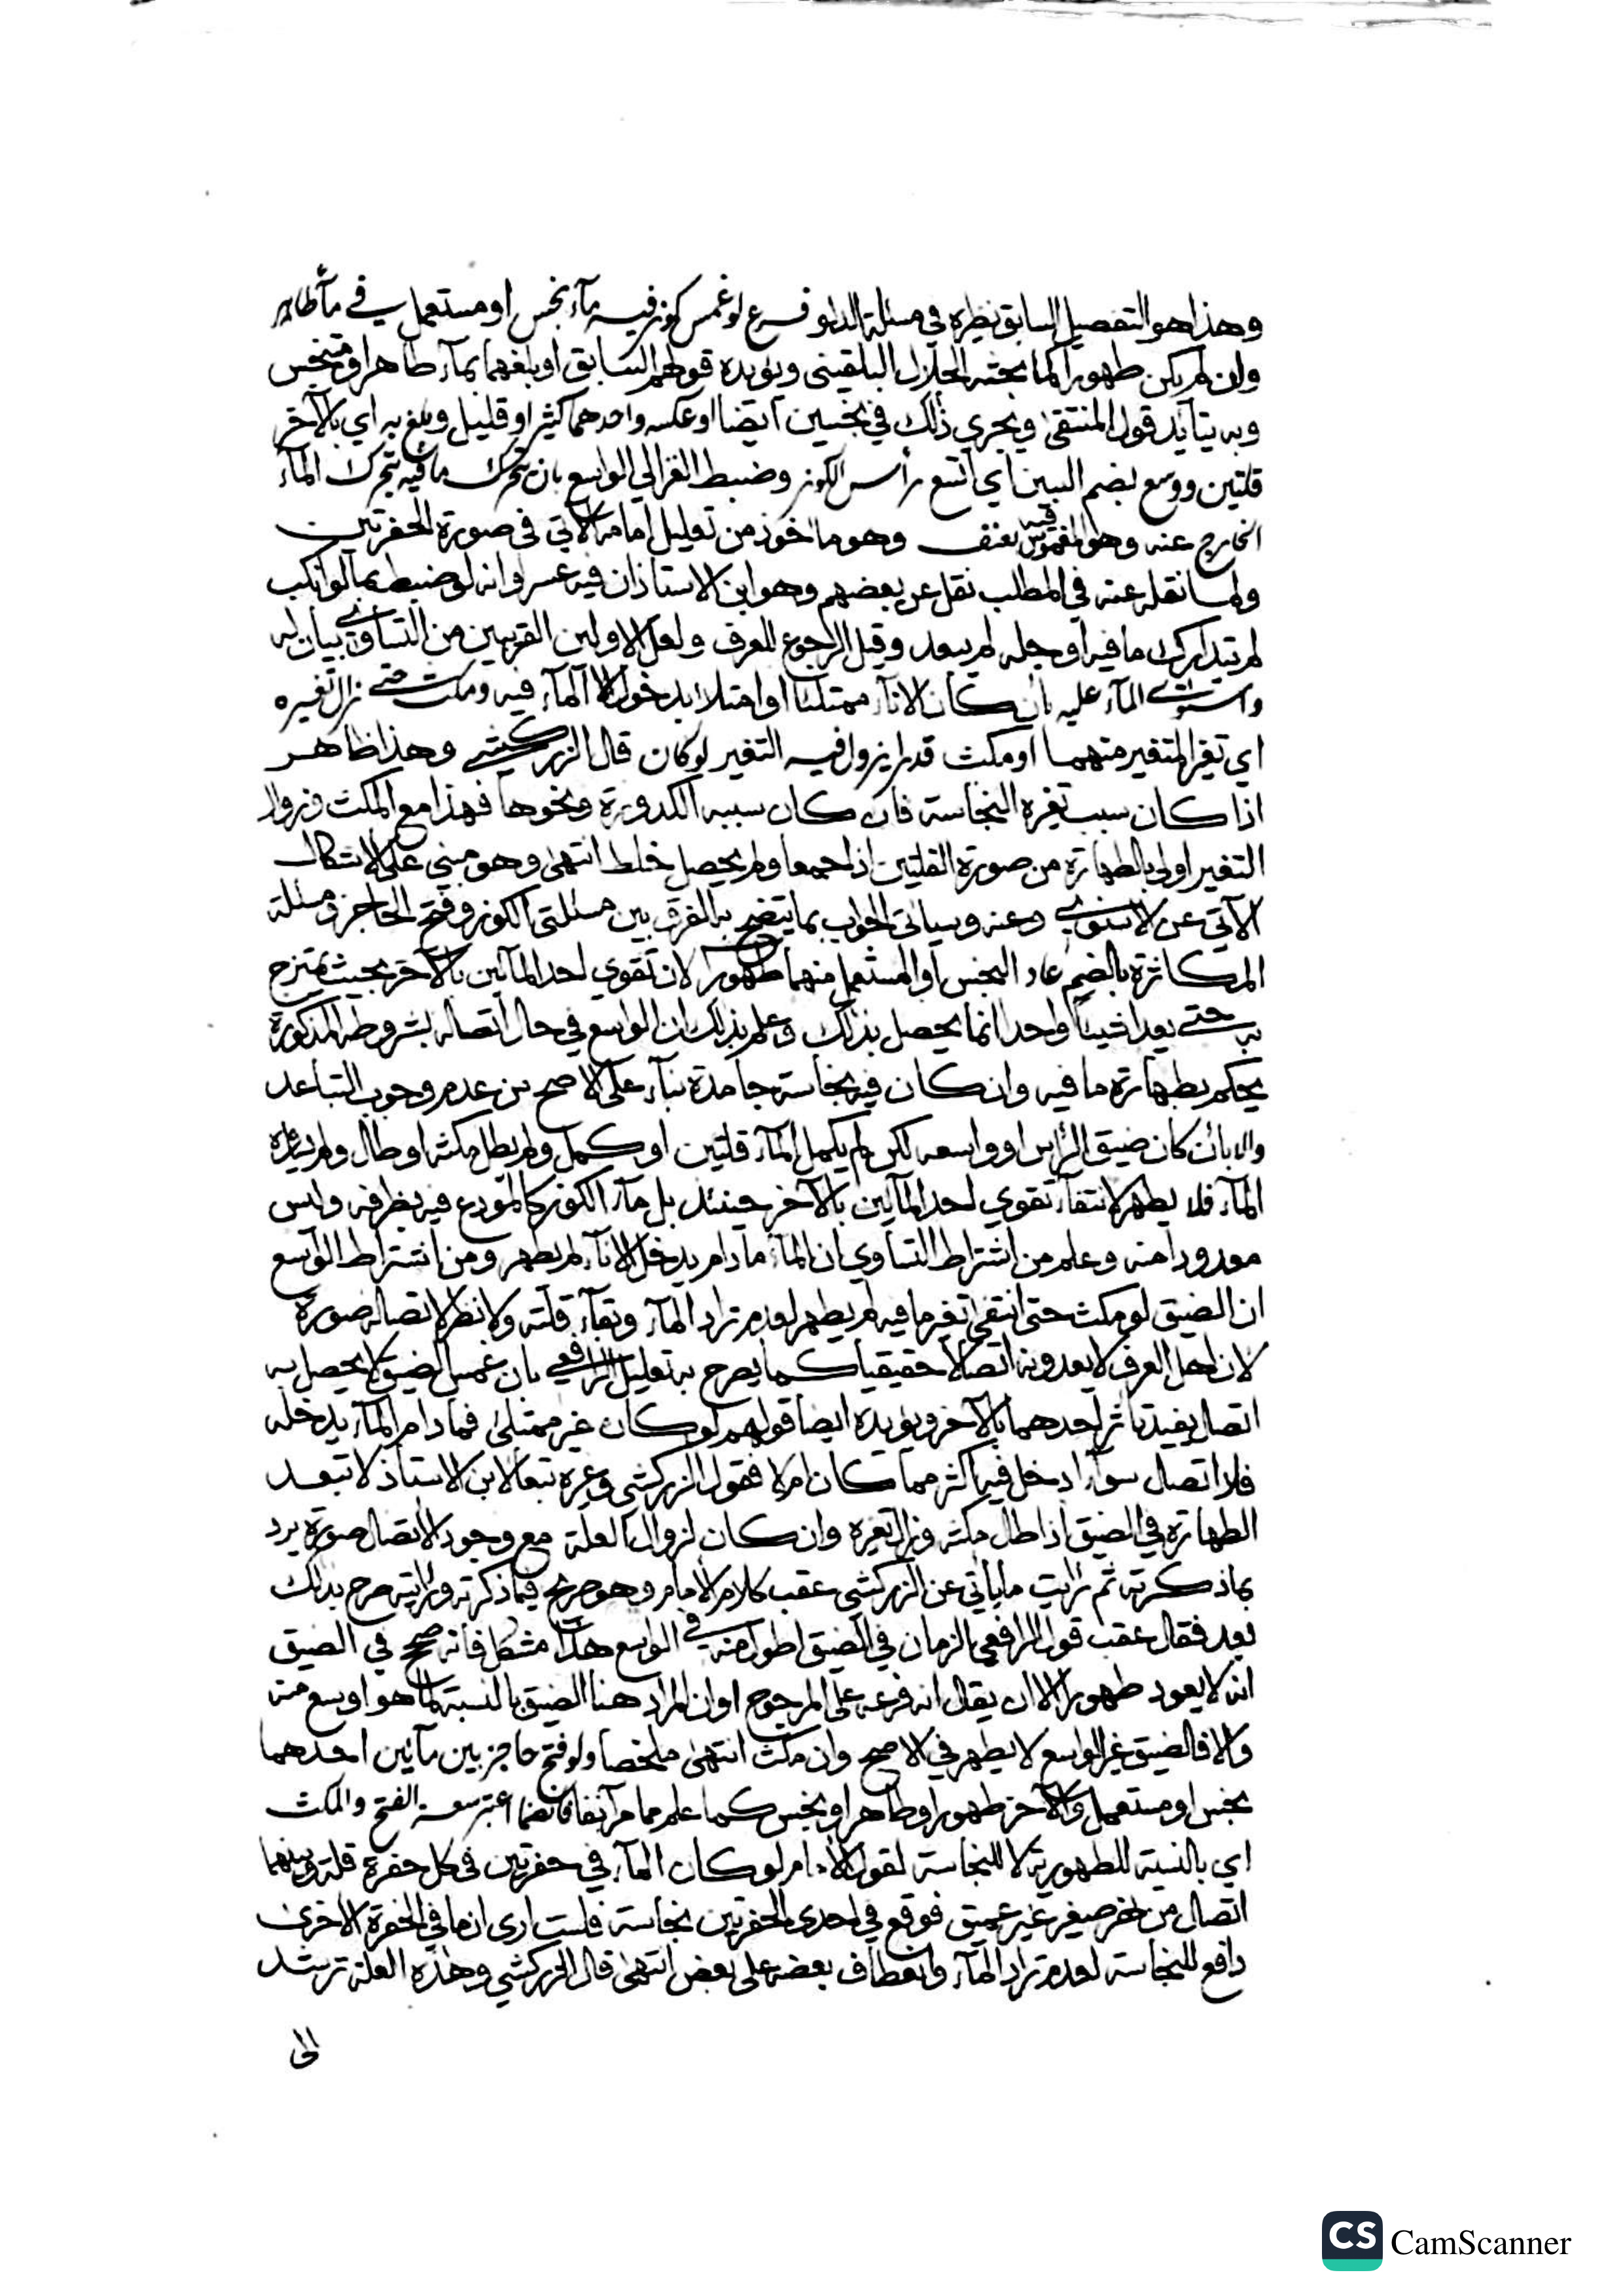 وهذا هو التفصيل السابق نظيره في مسئلة الدلو فرع لو غمس كوز فيه مآء نجس او مستعمل في مآء طاهر
وان لم يكن طهورا كما بحثه الجلال البلقيني ويؤيده قولهم السابق او بلغهما بمآء طاهر او متنجس
وبه يتأيد قول المنتقى ويجري ذلك في نجسين ايضا او عكسه واحدهما كثير او قليل وبلغ به اي بالآخر
قلتين ووسع بضم السين اي اتسع رأس الكوز وضبط الغزالي الواسع بان يتحرك ما فيه بتحرك المآء
الخارج عنه وهو المغموس فيه بعنف وهو مأخوذ من تعليل امامه الآتي في صورة الحفرتين
ولما نقله عنه في المطلب نقل عن بعضهم وهو ابن الاستاذ ان فيه عسرا وانه لو ضبط بما لو انكب
لم يتدارك ما فيه او جله لم يبعد وقيل الرجوع للعرف ولعل الاولين القريبين من التساوي بيان له
واستوى المآء عليه بأن كان الانآء ممتلئا او امتلا بدخول المآء فيه ومكث حتى زال تغيره
اي تغير المتغير منهما او مكث قدرا يزول فيه التغير لو كان قال الزركشي وهذا ظاهر
اذا كان سبب تغيره النجاسة فان كان سببه الكدورة ونحوها فهذا مع المكث وزوال
التغير اولى بالطهارة من صورة القلتين اذا جمعا ولم يحصل خلط انتهى وهو مبني على الاشكال
الآتي عن الاسنوي وعنه وسيأتي الجواب بما يتضح به الفرق بين مسئلتي الكوز وفتح الحاجز ومسئلة
المكاثرة بالضم عاد النجس او المستعمل منهما طهورا لان تقوي احد المآئين بالآخر بحيث يمتزج
به حتى يعدا شيئا واحدا انما يحصل بذلك وعلم بذلك ان الواسع في حال اتصاله بشروطه المذكورة
يحكم بطهارة ما فيه وان كان فيه نجاسة جامدة بنآء على الاصح من عدم وجوب التباعد
والا بأن كان ضيق الرأس او واسعه لكن لم يكمل المآء قلتين او كمل ولم يطل مكثه او طال ولم يساوه
المآء فلا يطهر لانتفآء تقوي احد المآئين بالآخر حينئذ بل مآء الكوز كالمودع فيه بظرفه وليس
معدودا منه وعلم من اشتراط التساوي ان المآء ما دام يدخل الانآء لم يطهر ومن اشتراط الواسع
ان الضيق لو مكث حتى انتفى تغير ما فيه لم يطهر لعدم تراد المآء وبقآء قلته ولا نظر لاتصاله صورة
لان اهل العرف لا يعدونه اتصالا حقيقيا كما يصرح به تعليل الرافعي بان غمس الضيق لا يحصل به
اتصال يفيد تأثر احدهما بالآخر ويؤيده ايضا قولهم لو كان غير ممتلئ فما دام المآء يدخله
فلا اتصال سوآء ادخل فيه اكثر مما كان ام لا فقول الزركشي وغيره تبعا لابن الاستاذ لا تبعد
الطهارة في الضيق اذا طال مكثه وزال تغيره وان كان لزوال العلة مع وجود الاتصال صورة يرد
بما ذكرته ثم رأيت ما يأتي عن الزركشي عقب كلام الامام وهو صريح فيما ذكرته ورأيته صرح بذلك
بعد فقال عقب قول الرافعي الزمان في الضيق اطول منه في الواسع هذا مشكل فانه صحح في الضيق
انه لا يعود طهورا الا ان يقال انه فرعه على المرجوح او ان المراد هنا الضيق بالنسبة لما هو اوسع منه
والا فالضيق غير الواسع لا يطهر في الاصح وان مكث انتهى ملخصا ولو فتح حاجز بين مآئين احدهما
نجس او مستعمل والآخر طهور او طاهر او نجس كما علم مما مر آنفا فانضما اعتبر سعة الفتح والمكث
اي بالنسبة للطهورية لا للنجاسة لقول الامام لو كان المآء في حفرتين في كل حفرة قلة وبينهما
اتصال من نهر صغير غير عميق فوقع في احدى الحفرتين نجاسة فلست ارى ان ما في الحفرة الاخرى
دافع للنجاسة لعدم تراد المآء وانعطاف بعضه على بعض انتهى قال الزركشي وهذه العلة ترشد
الى
CS CamScanner